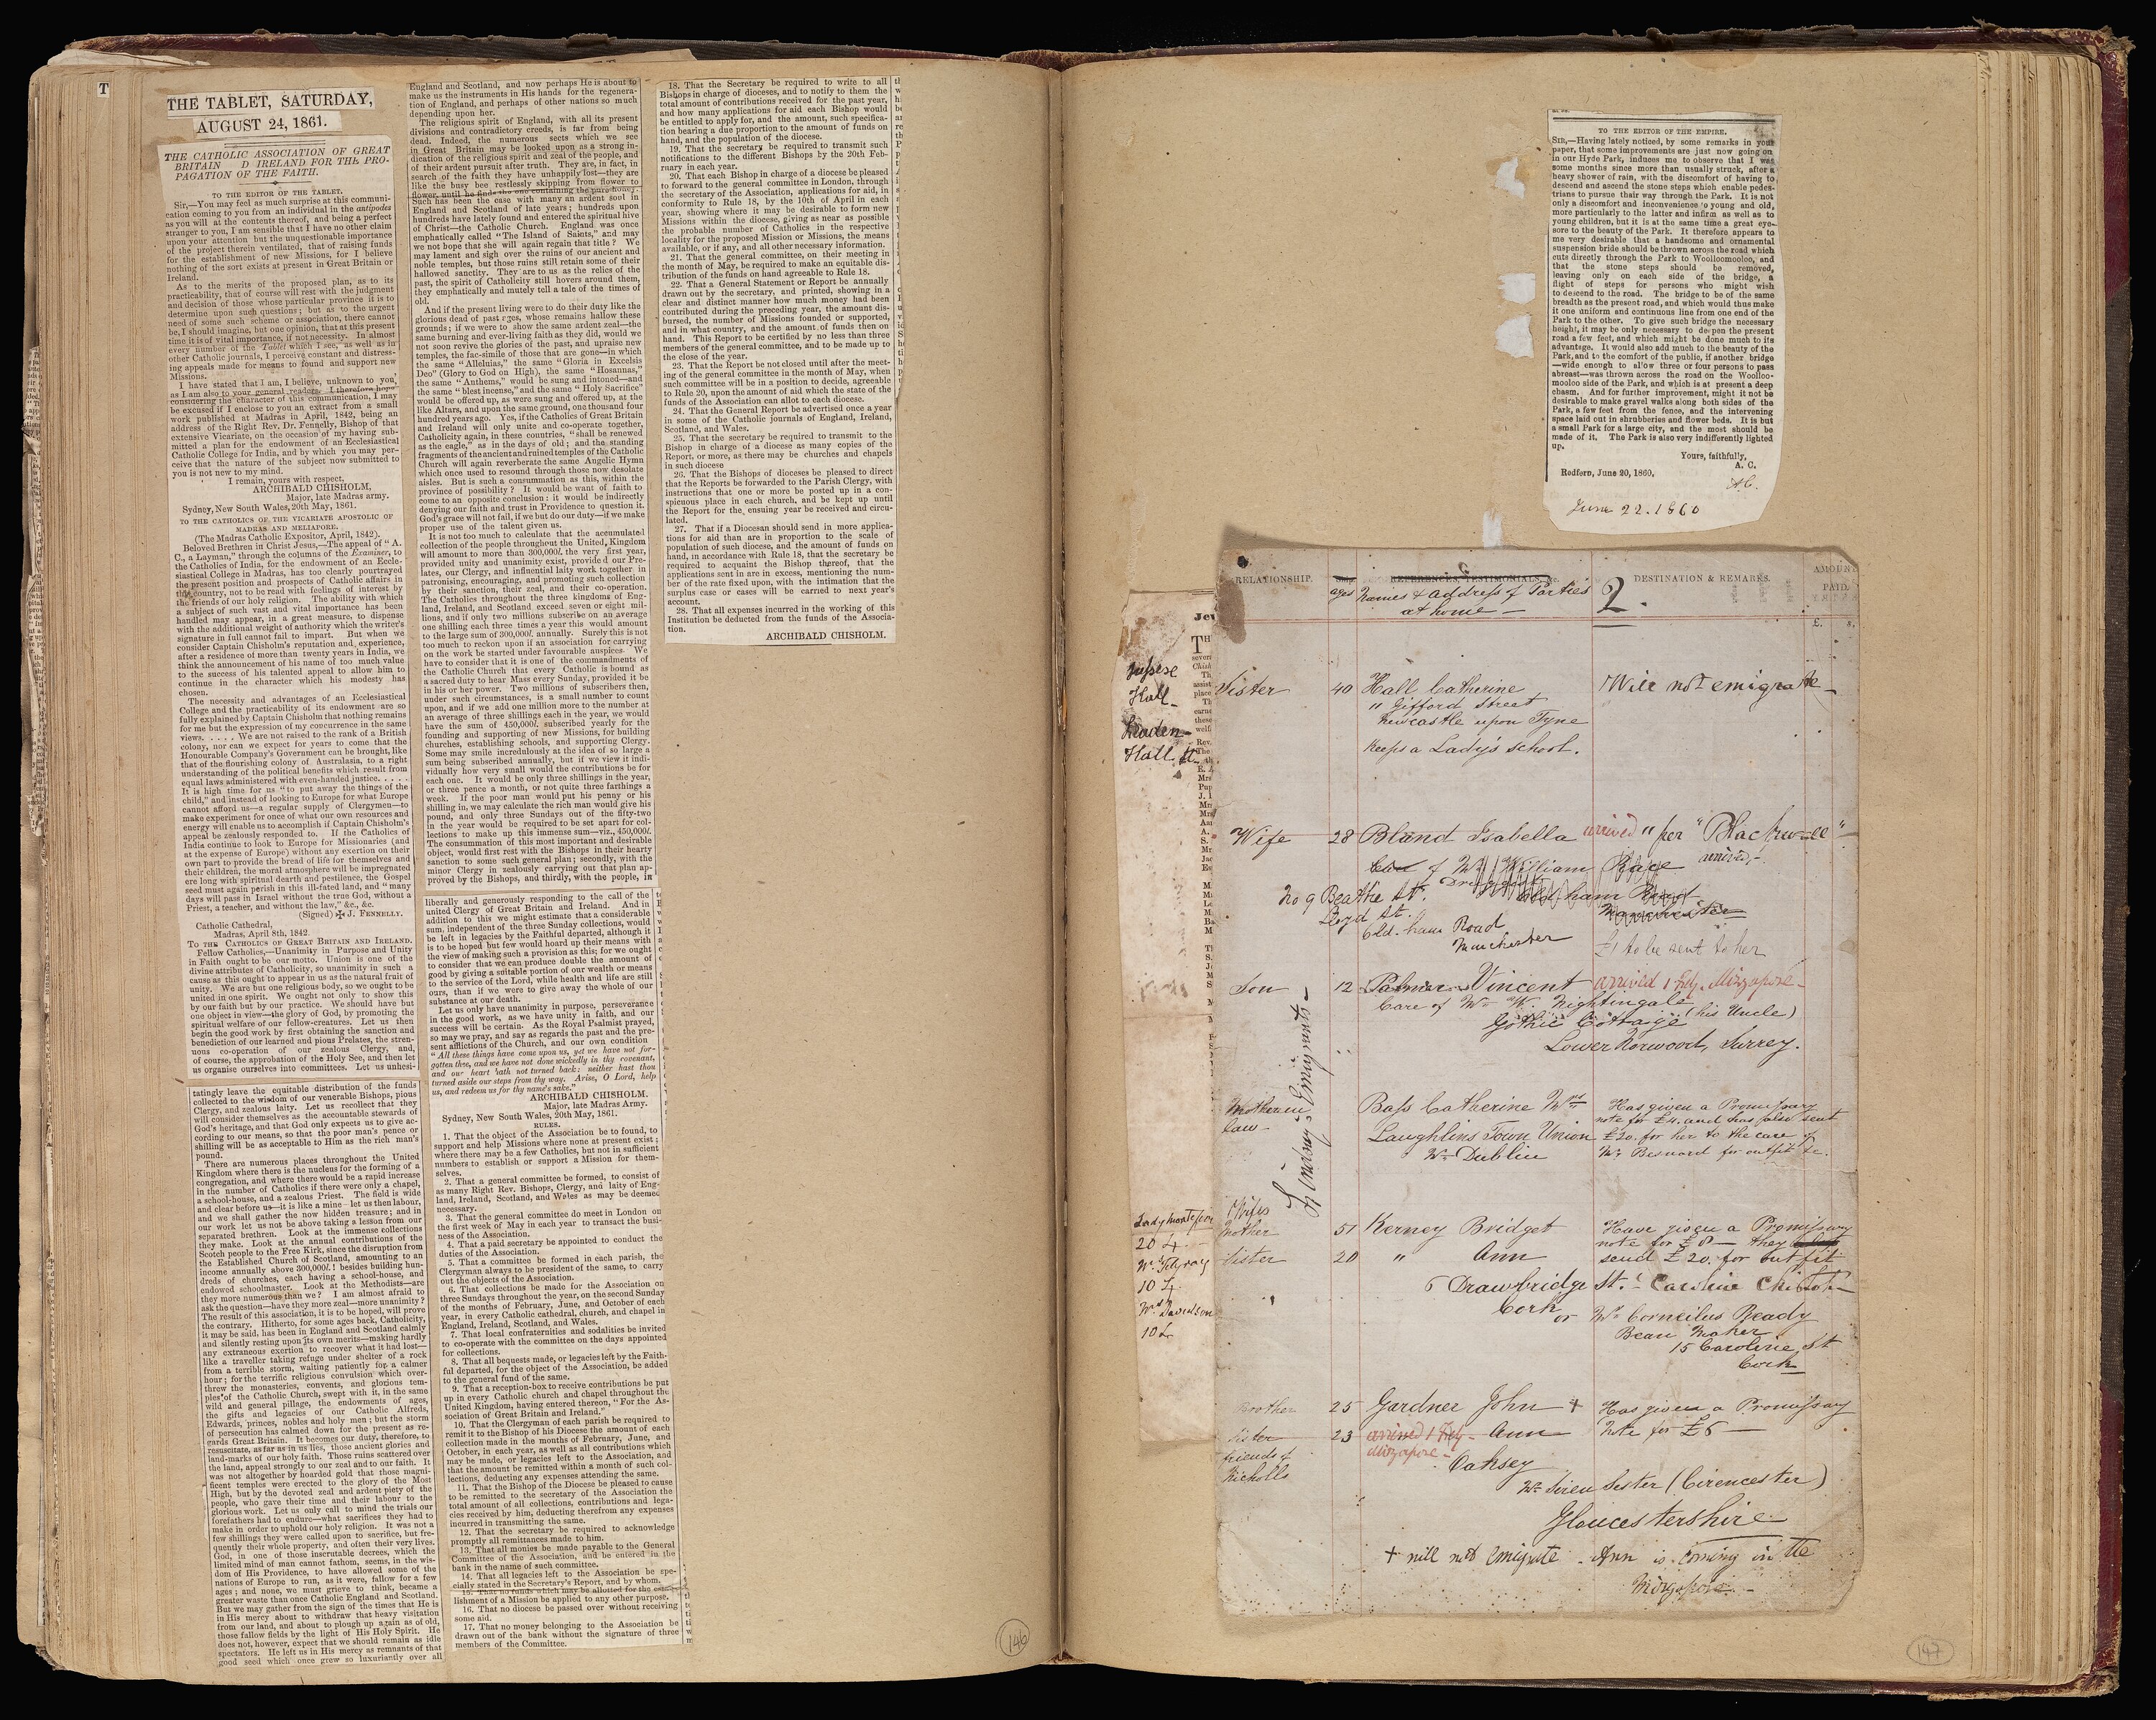 T
THE TABLET, SATURDAY,
AUGUST 24, 1861.
THE CATHOLIC ASSOCIATION OF GREAT
BRITAIN D IRELAND FOR THE PRO-
PAGATION OF THE FAITH.
TO THE EDITOR OF THE TABLET.
Sir,—You may feel as much surprise at this communi-
cation coming to you from an individual in the antipodes
as you will at the contents thereof, and being a perfect
stranger to you, I am sensible that I have no other claim
upon your attention but the unquestionable importance
of the project therein ventilated, that of raising funds
for the establishment of new Missions, for I believe
nothing of the sort exists at present in Great Britain or
Ireland.
As to the merits of the proposed plan, as to its
practicability, that of course will rest with the judgment
and decision of those whose particular province it is to
determine upon such questions; but as to the urgent
need of some such scheme or association, there cannot
be, I should imagine, but one opinion, that at this present
time it is of vital importance, if not necessity. In almost
every number of the Tablet which I see, as well as in
other Catholic journals, I perceive constant and distress-
ing appeals made for means to found and support new
Missions.
I have stated that I am, I believe, unknown to you,
as I am also to your general readers. I therefore hope
considering the character of this communication, I may
be excused if I enclose to you an extract from a small
work published at Madras in April, 1842, being an
address of the Right Rev. Dr. Fennelly, Bishop of that
extensive Vicariate, on the occasion of my having sub-
mitted a plan for the endowment of an Ecclesiastical
Catholic College for India, and by which you may per-
ceive that the nature of the subject now submitted to
you is not new to my mind.
I remain, yours with respect,
ARCHIBALD CHISHOLM,
Major, late Madras army.
Sydney, New South Wales, 20th May, 1861.
TO THE CATHOLICS OF THE VICARIATE APOSTOLIC OF
MADRAS AND MELIAPORE.
(The Madras Catholic Expositor, April, 1842).
Beloved Brethren in Christ Jesus,—The appeal of "A.
C., a Layman," through the columns of the Examiner, to
the Catholics of India, for the endowment of an Eccle-
siastical College in Madras, has too clearly pourtrayed
the present position and prospects of Catholic affairs in
this country, not to be read with feelings of interest by
the friends of our holy religion. The ability with which
a subject of such vast and vital importance has been
handled may appear, in a great measure, to dispense
with the additional weight of authority which the writer's
signature in full cannot fail to impart. But when we
consider Captain Chisholm's reputation and experience,
after a residence of more than twenty years in India, we
think the announcement of his name of too much value
to the success of his talented appeal to allow him to
continue in the character which his modesty has
chosen.
The necessity and advantages of an Ecclesiastical
College and the practicability of its endowment are so
fully explained by Captain Chisholm that nothing remains
for me but the expression of my concurrence in the same
views. . . . . We are not raised to the rank of a British
colony, nor can we expect for years to come that the
Honourable Company's Government can be brought, like
that of the flourishing colony of Australasia, to a right
understanding of the political benefits which result from
equal laws administered with even-handed justice. . . . .
It is high time for us "to put away the things of the
child," and instead of looking to Europe for what Europe
cannot afford us—a regular supply of Clergymen—to
make experiment for once of what our own resources and
energy will enable us to accomplish if Captain Chisholm's
appeal be zealously responded to. If the Catholics of
India continue to look to Europe for Missionaries (and
at the expense of Europe) without any exertion on their
own part to provide the bread of life for themselves and
their children, the moral atmosphere will be impregnated
ere long with spiritual dearth and pestilence, the Gospel
seed must again perish in this ill-fated land, and "many
days will pass in Israel without the true God, without a
Priest, a teacher, and without the law," &c., &c.
(Signed) ✠ J. FENNELLY.
Catholic Cathedral,
Madras, April 8th, 1842.
TO THE CATHOLICS OF GREAT BRITAIN AND IRELAND.
Fellow Catholics,—Unanimity in Purpose and Unity
in Faith ought to be our motto. Union is one of the
divine attributes of Catholicity, so unanimity in such a
cause as this ought to appear in us as the natural fruit of
unity. We are but one religious body, so we ought to be
united in one spirit. We ought not only to show this
by our faith but by our practice. We should have but
one object in view—the glory of God, by promoting the
spiritual welfare of our fellow-creatures. Let us then
begin the good work by first obtaining the sanction and
benediction of our learned and pious Prelates, the stren-
uous co-operation of our zealous Clergy, and,
of course, the approbation of the Holy See, and then let
us organise ourselves into committees. Let us unhesi-
tatingly leave the equitable distribution of the funds
collected to the wisdom of our venerable Bishops, pious
Clergy, and zealous laity. Let us recollect that they
will consider themselves as the accountable stewards of
God's heritage, and that God only expects us to give ac-
cording to our means, so that the poor man's pence or
shilling will be as acceptable to Him as the rich man's
pound.
There are numerous places throughout the United
Kingdom where there is the nucleus for the forming of a
congregation, and where there would be a rapid increase
in the number of Catholics if there were only a chapel,
a school-house, and a zealous Priest. The field is wide
and clear before us—it is like a mine—let us then labour,
and we shall gather the now hidden treasure; and in
our work let us not be above taking a lesson from our
separated brethren. Look at the immense collections
they make. Look at the annual contributions of the
Scotch people to the Free Kirk, since the disruption from
the Established Church of Scotland, amounting to an
income annually above 300,000l. besides building hun-
dreds of churches, each having a school-house, and
endowed schoolmaster. Look at the Methodists—are
they more numerous than we? I am almost afraid to
ask the question—have they more zeal—more unanimity?
The result of this association, it is to be hoped, will prove
the contrary. Hitherto, for some ages back, Catholicity,
it may be said, has been in England and Scotland calmly
and silently resting upon its own merits—making hardly
any extraneous exertion to recover what it had lost—
like a traveller taking refuge under shelter of a rock
from a terrible storm, waiting patiently for a calmer
hour; for the terrific religious convulsion which over-
threw the monasteries, convents, and glorious tem-
ples of the Catholic Church, swept with it, in the same
wild and general pillage, the endowments of ages,
the gifts and legacies of our Catholic Alfreds,
Edwards, princes, nobles and holy men; but the storm
of persecution has calmed down for the present as re-
gards Great Britain. It becomes our duty, therefore, to
resuscitate, as far as in us lies, those ancient glories and
land-marks of our holy faith. Those ruins scattered over
the land, appeal strongly to our zeal and to our faith. It
was not altogether by hoarded gold that those magni-
ficent temples were erected to the glory of the Most
High, but by the devoted zeal and ardent piety of the
people, who gave their time and their labour to the
glorious work. Let us only call to mind the trials our
forefathers had to endure—what sacrifices they had to
make in order to uphold our holy religion. It was not a
few shillings they were called upon to sacrifice, but fre-
quently their whole property, and often their very lives.
God, in one of those inscrutable decrees, which the
limited mind of man cannot fathom, seems, in the wis-
dom of His Providence, to have allowed some of the
nations of Europe to run, as it were, fallow for a few
ages; and none, we must grieve to think, became a
greater waste than once Catholic England and Scotland.
But we may gather from the sign of the times that He is
in His mercy about to withdraw that heavy visitation
from our land, and about to plough up again as of old,
those fallow fields by the light of His Holy Spirit. He
does not, however, expect that we should remain as idle
spectators. He left us in His mercy as remnants of that
good seed which once grew so luxuriantly over all
England and Scotland, and now perhaps He is about to
make us the instruments in His hands for the regenera-
tion of England, and perhaps of other nations so much
depending upon her.
The religious spirit of England, with all its present
divisions and contradictory creeds, is far from being
dead. Indeed, the numerous sects which we see
in Great Britain may be looked upon as a strong in-
dication of the religious spirit and zeal of the people, and
of their ardent pursuit after truth. They are, in fact, in
search of the faith they have unhappily lost—they are
like the busy bee restlessly skipping from flower to
flower until he finds the one containing the pure honey.
Such has been the case with many an ardent soul in
England and Scotland of late years; hundreds upon
hundreds have lately found and entered the spiritual hive
of Christ—the Catholic Church. England was once
emphatically called "The Island of Saints," and may
we not hope that she will again regain that title? We
may lament and sigh over the ruins of our ancient and
noble temples, but those ruins still retain some of their
hallowed sanctity. They are to us as the relics of the
past, the spirit of Catholicity still hovers around them,
they emphatically and mutely tell a tale of the times of
old.
And if the present living were to do their duty like the
glorious dead of past ages, whose remains hallow these
grounds; if we were to show the same ardent zeal—the
same burning and ever-living faith as they did, would we
not soon revive the glories of the past, and upraise new
temples, the fac-simile of those that are gone—in which
the same "Alleluias," the same "Gloria in Excelsis
Deo" (Glory to God on High), the same "Hosannas,"
the same "Anthems," would be sung and intoned—and
the same "blest incense," and the same "Holy Sacrifice"
would be offered up, as were sung and offered up, at the
like Altars, and upon the same ground, one thousand four
hundred years ago. Yes, if the Catholics of Great Britain
and Ireland will only unite and co-operate together,
Catholicity again, in these countries, "shall be renewed
as the eagle," as in the days of old; and the standing
fragments of the ancient and ruined temples of the Catholic
Church will again reverberate the same Angelic Hymn
which once used to resound through those now desolate
aisles. But is such a consummation as this, within the
province of possibility? It would be want of faith to
come to an opposite conclusion: it would be indirectly
denying our faith and trust in Providence to question it.
God's grace will not fail, if we but do our duty—if we make
proper use of the talent given us.
It is not too much to calculate that the accumulated
collection of the people throughout the United Kingdom
will amount to more than 300,000l. the very first year,
provided unity and unanimity exist, provided our Pre-
lates, our Clergy, and influential laity work together in
patronising, encouraging, and promoting such collection
by their sanction, their zeal, and their co-operation.
The Catholics throughout the three kingdoms of Eng-
land, Ireland, and Scotland exceed seven or eight mil-
lions, and if only two millions subscribe on an average
one shilling each three times a year this would amount
to the large sum of 300,000l. annually. Surely this is not
too much to reckon upon if an association for carrying
on the work be started under favourable auspices. We
have to consider that it is one of the commandments of
the Catholic Church that every Catholic is bound as
a sacred duty to hear Mass every Sunday, provided it be
in his or her power. Two millions of subscribers then,
under such circumstances, is a small number to count
upon, and if we add one million more to the number at
an average of three shillings each in the year, we would
have the sum of 450,000l. subscribed yearly for the
founding and supporting of new Missions, for building
churches, establishing schools, and supporting Clergy.
Some may smile incredulously at the idea of so large a
sum being subscribed annually, but if we view it indi-
vidually how very small would the contributions be for
each one. It would be only three shillings in the year,
or three pence a month, or not quite three farthings a
week. If the poor man would put his penny or his
shilling in, we may calculate the rich man would give his
pound, and only three Sundays out of the fifty-two
in the year would be required to be set apart for col-
lections to make up this immense sum—viz., 450,000l.
The consummation of this most important and desirable
object, would first rest with the Bishops in their hearty
sanction to some such general plan; secondly, with the
minor Clergy in zealously carrying out that plan ap-
proved by the Bishops, and thirdly, with the people, in
liberally and generously responding to the call of the
united Clergy of Great Britain and Ireland. And in
addition to this we might estimate that a considerable
sum, independent of the three Sunday collections, would
be left in legacies by the Faithful departed, although it
is to be hoped but few would hoard up their means with
the view of making such a provision as this; for we ought
to consider that we can produce double the amount of
good by giving a suitable portion of our wealth or means
to the service of the Lord, while health and life are still
ours, than if we were to give away the whole of our
substance at our death.
Let us only have unanimity in purpose, perseverance
in the good work, as we have unity in faith, and our
success will be certain. As the Royal Psalmist prayed,
so may we pray, and say as regards the past and the pre-
sent afflictions of the Church, and our own condition
"All these things have come upon us, yet we have not for-
gotten thee, and we have not done wickedly in thy covenant,
and our heart hath not turned back: neither hast thou
turned aside our steps from thy way. Arise, O Lord, help
us, and redeem us for thy name's sake."
ARCHIBALD CHISHOLM.
Major, late Madras Army.
Sydney, New South Wales, 20th May, 1861.
RULES.
1. That the object of the Association be to found, to
support and help Missions where none at present exist;
where there may be a few Catholics, but not in sufficient
numbers to establish or support a Mission for them-
selves.
2. That a general committee be formed, to consist of
as many Right Rev. Bishops, Clergy, and laity of Eng-
land, Ireland, Scotland, and Wales as may be deemed
necessary.
3. That the general committee do meet in London on
the first week of May in each year to transact the busi-
ness of the Association.
4. That a paid secretary be appointed to conduct the
duties of the Association.
5. That a committee be formed in each parish, the
Clergyman always to be president of the same, to carry
out the objects of the Association.
6. That collections be made for the Association on
three Sundays throughout the year, on the second Sunday
of the months of February, June, and October of each
year, in every Catholic cathedral, church, and chapel in
England, Ireland, Scotland, and Wales.
7. That local confraternities and sodalities be invited
to co-operate with the committee on the days appointed
for collections.
8. That all bequests made, or legacies left by the Faith-
ful departed, for the object of the Association, be added
to the general fund of the same.
9. That a reception-box to receive contributions be put
up in every Catholic church and chapel throughout the
United Kingdom, having entered thereon, "For the As-
sociation of Great Britain and Ireland."
10. That the Clergyman of each parish be required to
remit it to the Bishop of his Diocese the amount of each
collection made in the months of February, June, and
October, in each year, as well as all contributions which
may be made, or legacies left to the Association, and
that the amount be remitted within a month of such col-
lections, deducting any expenses attending the same.
11. That the Bishop of the Diocese be pleased to cause
to be remitted to the secretary of the Association the
total amount of all collections, contributions and lega-
cies received by him, deducting therefrom any expenses
incurred in transmitting the same.
12. That the secretary be required to acknowledge
promptly all remittances made to him.
13. That all monies be made payable to the General
Committee of the Association, and be entered in the
bank in the name of such committee.
14. That all legacies left to the Association be spe-
cially stated in the Secretary's Report, and by whom.
15. That no funds which may be allotted for the estab-
lishment of a Mission be applied to any other purpose.
16. That no diocese be passed over without receiving
some aid.
17. That no money belonging to the Association be
drawn out of the bank without the signature of three
members of the Committee.
18. That the Secretary be required to write to all
Bishops in charge of dioceses, and to notify to them the
total amount of contributions received for the past year,
and how many applications for aid each Bishop would
be entitled to apply for, and the amount, such specifica-
tion bearing a due proportion to the amount of funds on
hand, and the population of the diocese.
19. That the secretary be required to transmit such
notifications to the different Bishops by the 20th Feb-
ruary in each year.
20. That each Bishop in charge of a diocese be pleased
to forward to the general committee in London, through
the secretary of the Association, applications for aid, in
conformity to Rule 18, by the 10th of April in each
year, showing where it may be desirable to form new
Missions within the diocese, giving as near as possible
the probable number of Catholics in the respective
locality for the proposed Mission or Missions, the means
available, or if any, and all other necessary information.
21. That the general committee, on their meeting in
the month of May, be required to make an equitable dis-
tribution of the funds on hand agreeable to Rule 18.
22. That a General Statement or Report be annually
drawn out by the secretary, and printed, showing in a
clear and distinct manner how much money had been
contributed during the preceding year, the amount dis-
bursed, the number of Missions founded or supported,
and in what country, and the amount of funds then on
hand. This Report to be certified by no less than three
members of the general committee, and to be made up to
the close of the year.
23. That the Report be not closed until after the meet-
ing of the general committee in the month of May, when
such committee will be in a position to decide, agreeable
to Rule 20, upon the amount of aid which the state of the
funds of the Association can allot to each diocese.
24. That the General Report be advertised once a year
in some of the Catholic journals of England, Ireland,
Scotland, and Wales.
25. That the secretary be required to transmit to the
Bishop in charge of a diocese as many copies of the
Report, or more, as there may be churches and chapels
in such diocese
26. That the Bishops of dioceses be pleased to direct
that the Reports be forwarded to the Parish Clergy, with
instructions that one or more be posted up in a con-
spicuous place in each church, and be kept up until
the Report for the ensuing year be received and circu-
lated.
27. That if a Diocesan should send in more applica-
tions for aid than are in proportion to the scale of
population of such diocese, and the amount of funds on
hand, in accordance with Rule 18, that the secretary be
required to acquaint the Bishop thereof, that the
applications sent in are in excess, mentioning the num-
ber of the rate fixed upon, with the intimation that the
surplus case or cases will be carried to next year's
account.
28. That all expenses incurred in the working of this
Institution be deducted from the funds of the Associa-
tion.
ARCHIBALD CHISHOLM.
146
TO THE EDITOR OF THE EMPIRE.
SIR,—Having lately noticed, by some remarks in your
paper, that some improvements are just now going on
in our Hyde Park, induces me to observe that I was
some months since more than usually struck, after a
heavy shower of rain, with the discomfort of having to
descend and ascend the stone steps which enable pedes-
trians to pursue their way through the Park. It is not
only a discomfort and inconvenience to young and old,
more particularly to the latter and infirm as well as to
young children, but it is at the same time a great eye-
sore to the beauty of the Park. It therefore appears to
me very desirable that a handsome and ornamental
suspension bride should be thrown across the road which
cuts directly through the Park to Woolloomooloo, and
that the stone steps should be removed,
leaving only on each side of the bridge, a
flight of steps for persons who might wish
to descend to the road. The bridge to be of the same
breadth as the present road, and which would thus make
it one uniform and continuous line from one end of the
Park to the other. To give such bridge the necessary
height, it may be only necessary to deepen the present
road a few feet, and which might be done much to its
advantage. It would also add much to the beauty of the
Park, and to the comfort of the public, if another bridge
—wide enough to allow three or four persons to pass
abreast—was thrown across the road on the Woolloo-
mooloo side of the Park, and which is at present a deep
chasm. And for further improvement, might it not be
desirable to make gravel walks along both sides of the
Park, a few feet from the fence, and the intervening
space laid out in shrubberies and flower beds. It is but
a small Park for a large city, and the most should be
made of it. The Park is also very indifferently lighted
up.
Yours, faithfully,
A. C.
Redfern, June 20, 1860.
A.C.
June 22. 1860
Hall
Leaden-
Hall St.
20 £
10 £
Mrs Davidson
10 £
RELATIONSHIP.
ages
REFERENCES, TESTIMONIALS, &c.
Names & address of Parties
at home —
DESTINATION & REMARKS.
2.
AMOUNT
PAID.
£. s.
Sister 40 Hall Catherine Will not emigrate —
" Gifford Street
Newcastle upon Tyne
Keeps a Lady's School.
Wife 28 Bland Isabella arrived " per "Blackwall"
Care of Mr William Race arrived,-
No 9 Beathe St.
Lloyd St.
Old.ham Road
Manchester
Manchester
£1 to be sent to her
Son 12 Palmer Vincent arrived 1 Feby. Mizapore —
Care of Mr W. Nightingale
Gothic Cottaige (his Uncle)
Lower Norwood, Surrey.
Lindsay's Emigrants —
Mother in
law — Bass Catherine Mrs Has given a Promissary
note for £4. and has also sent
Laughlins Town Union £20. for her to the care of
Nr Dublin Mr Besnard for outfit &c.
Wifes
Mother 51 Kerney Bridget Have given a Promissary
note for £8 — they
Sister 20 " Ann send £20. for outfit
6 Drawbridge St.
Cork or Mr Corneilus Ready
Beam Maker
15 Caroline St
Cork
Brother 25 Gardner John + Has given a Promissary
Note for £6 —
Sister 23 arrived 1 Feby — Ann
Mizapore —
friends of
Nicholls
Oaksey
Nr Siren Sester (Cirencester)
Gloucestershire
+ will not Emigrate. Ann is coming in the
Mizapore. —
147